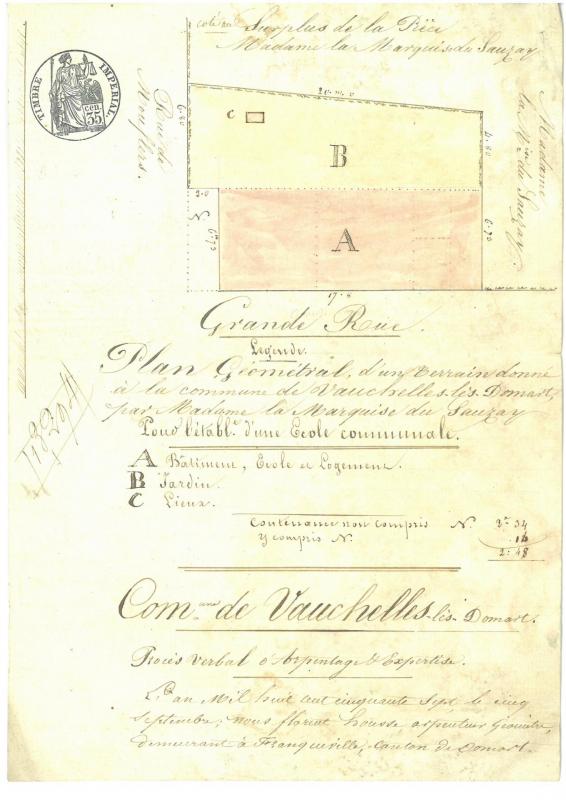 coté au Surplus de la Pièce
Madame la Marquise du Sauzay
TIMBRE IMPERIAL
35 cen.
Rue de
Mouflers.
20. m. 0
6.80
C
B
6.80
Madame
la Mise du Sauzay.
2.0
N.
6m 70
A
6.70
17.8
Grande Rue.
Legende.
Plan Géométral, d'un terrain donné
à la commune de Vauchelles-lès-Domart,
par Madame la Marquise du Sauzay
Pour l'établt. d'une Ecole communale.
A Bâtiment, Ecole et Logement.
B Jardin.
C Lieux.
Contenance non compris N. 2a 34
y compris N. . 14
2. 48
Comune de Vauchelles-lès-Domart.
Procès Verbal d'Arpentage & Expertise.
L'an Mil huit cent cinquante Sept le cinq
Septembre; nous florent housse arpenteur Géomètre,
demeurant à Franqueville, Canton de Domart.